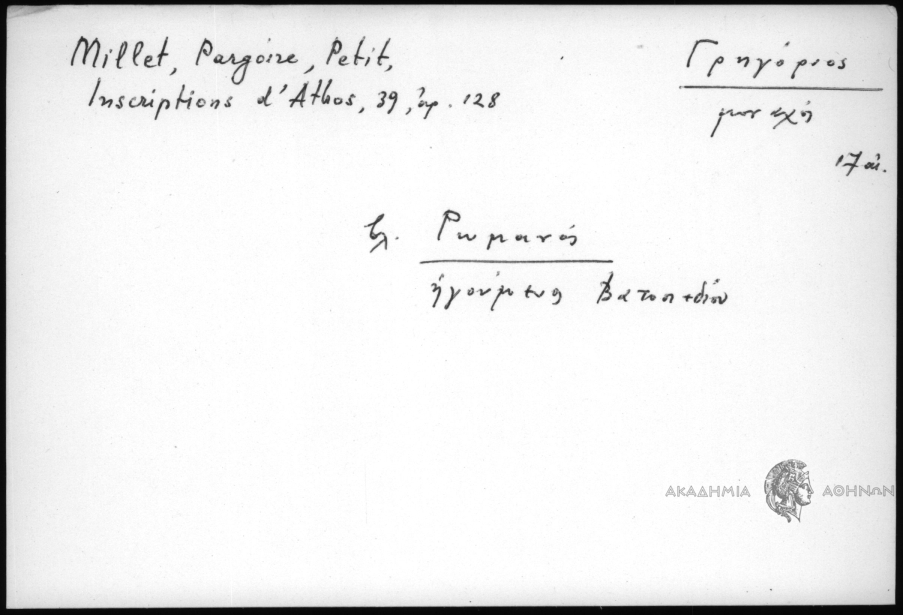 Millet, Pargoire, Petit,
Inscriptions d'Athos, 39, ἀρ. 128
Γρηγόριος
μοναχός
17 αἰ.
βλ. Ρωμανός
ἡγούμενος Βατοπεδίου
ΑΚΑΔΗΜΙΑ ΑΘΗΝΩΝ